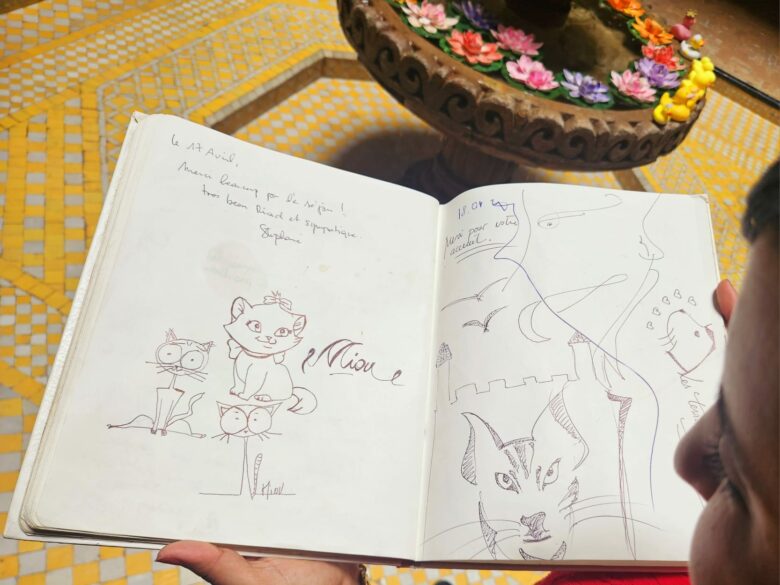 Le 17 Avril,
Merci beaucoup pour le séjour !
très beau Riad et sympathique.
Stéphane
Miou
Miou
18 04
Merci pour votre
accueil.